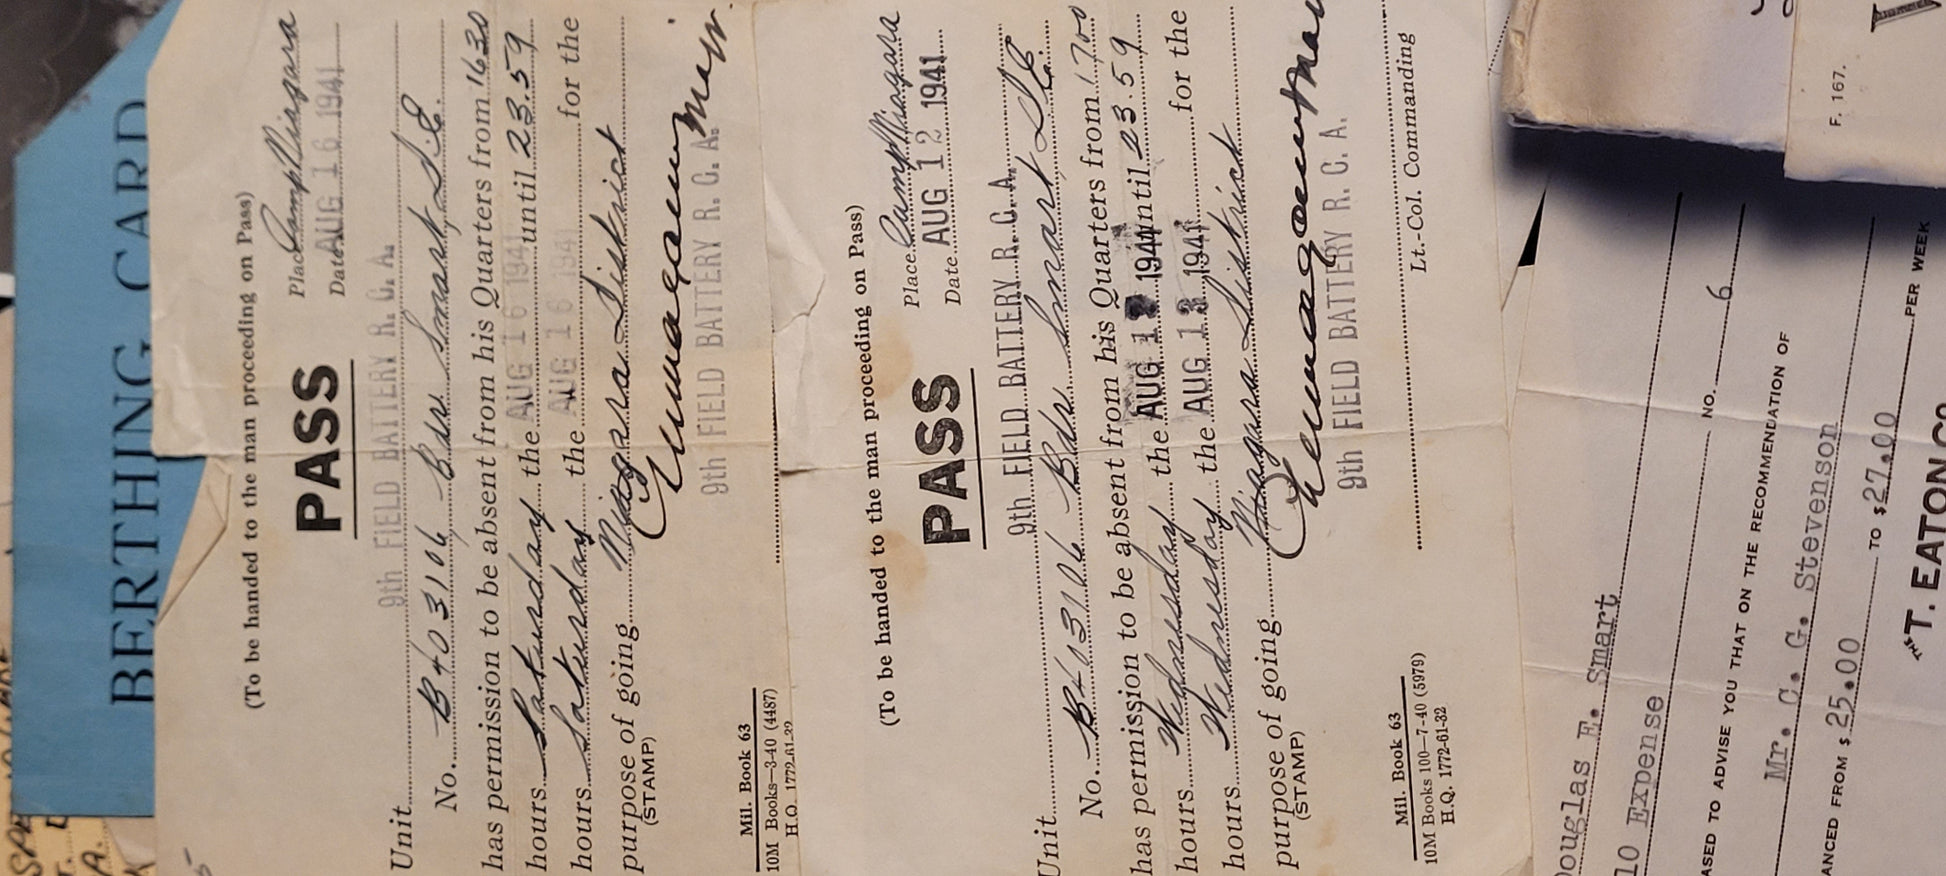 BERTHING CARD
(To be handed to the man proceeding on Pass)
PASS
Place Camp Niagara
Date AUG 16 1941
Unit 9th FIELD BATTERY R. C. A.
No. B403106 Bdr Smart, D.E.
has permission to be absent from his Quarters from 1630
hours Saturday the AUG 16 1941 until 23.59
hours Saturday the AUG 16 1941 for the
purpose of going Niagara District
(STAMP)
9th FIELD BATTERY R. C. A.
Mil. Book 63
10M Books—3-40 (4487)
H.Q. 1772-61-32
(To be handed to the man proceeding on Pass)
PASS
Place Camp Niagara
Date AUG 12 1941
Unit 9th FIELD BATTERY R. C. A.
No. B403106 Bdr Smart DE
has permission to be absent from his Quarters from 1700
hours Wednesday the AUG 13 1941 until 23 59
hours Wednesday the AUG 13 1941 for the
purpose of going Niagara District
(STAMP)
9th FIELD BATTERY R. C. A.
Lt.-Col. Commanding
Mil. Book 63
10M Books 100—7-40 (5979)
H.Q. 1772-61-32
F. 167.
Douglas E. Smart
10 Expense NO. 6
ASED TO ADVISE YOU THAT ON THE RECOMMENDATION OF
Mr. C. G. Stevenson
ANCED FROM $ 25.00 TO $ 27.00 PER WEEK
THE T. EATON CO